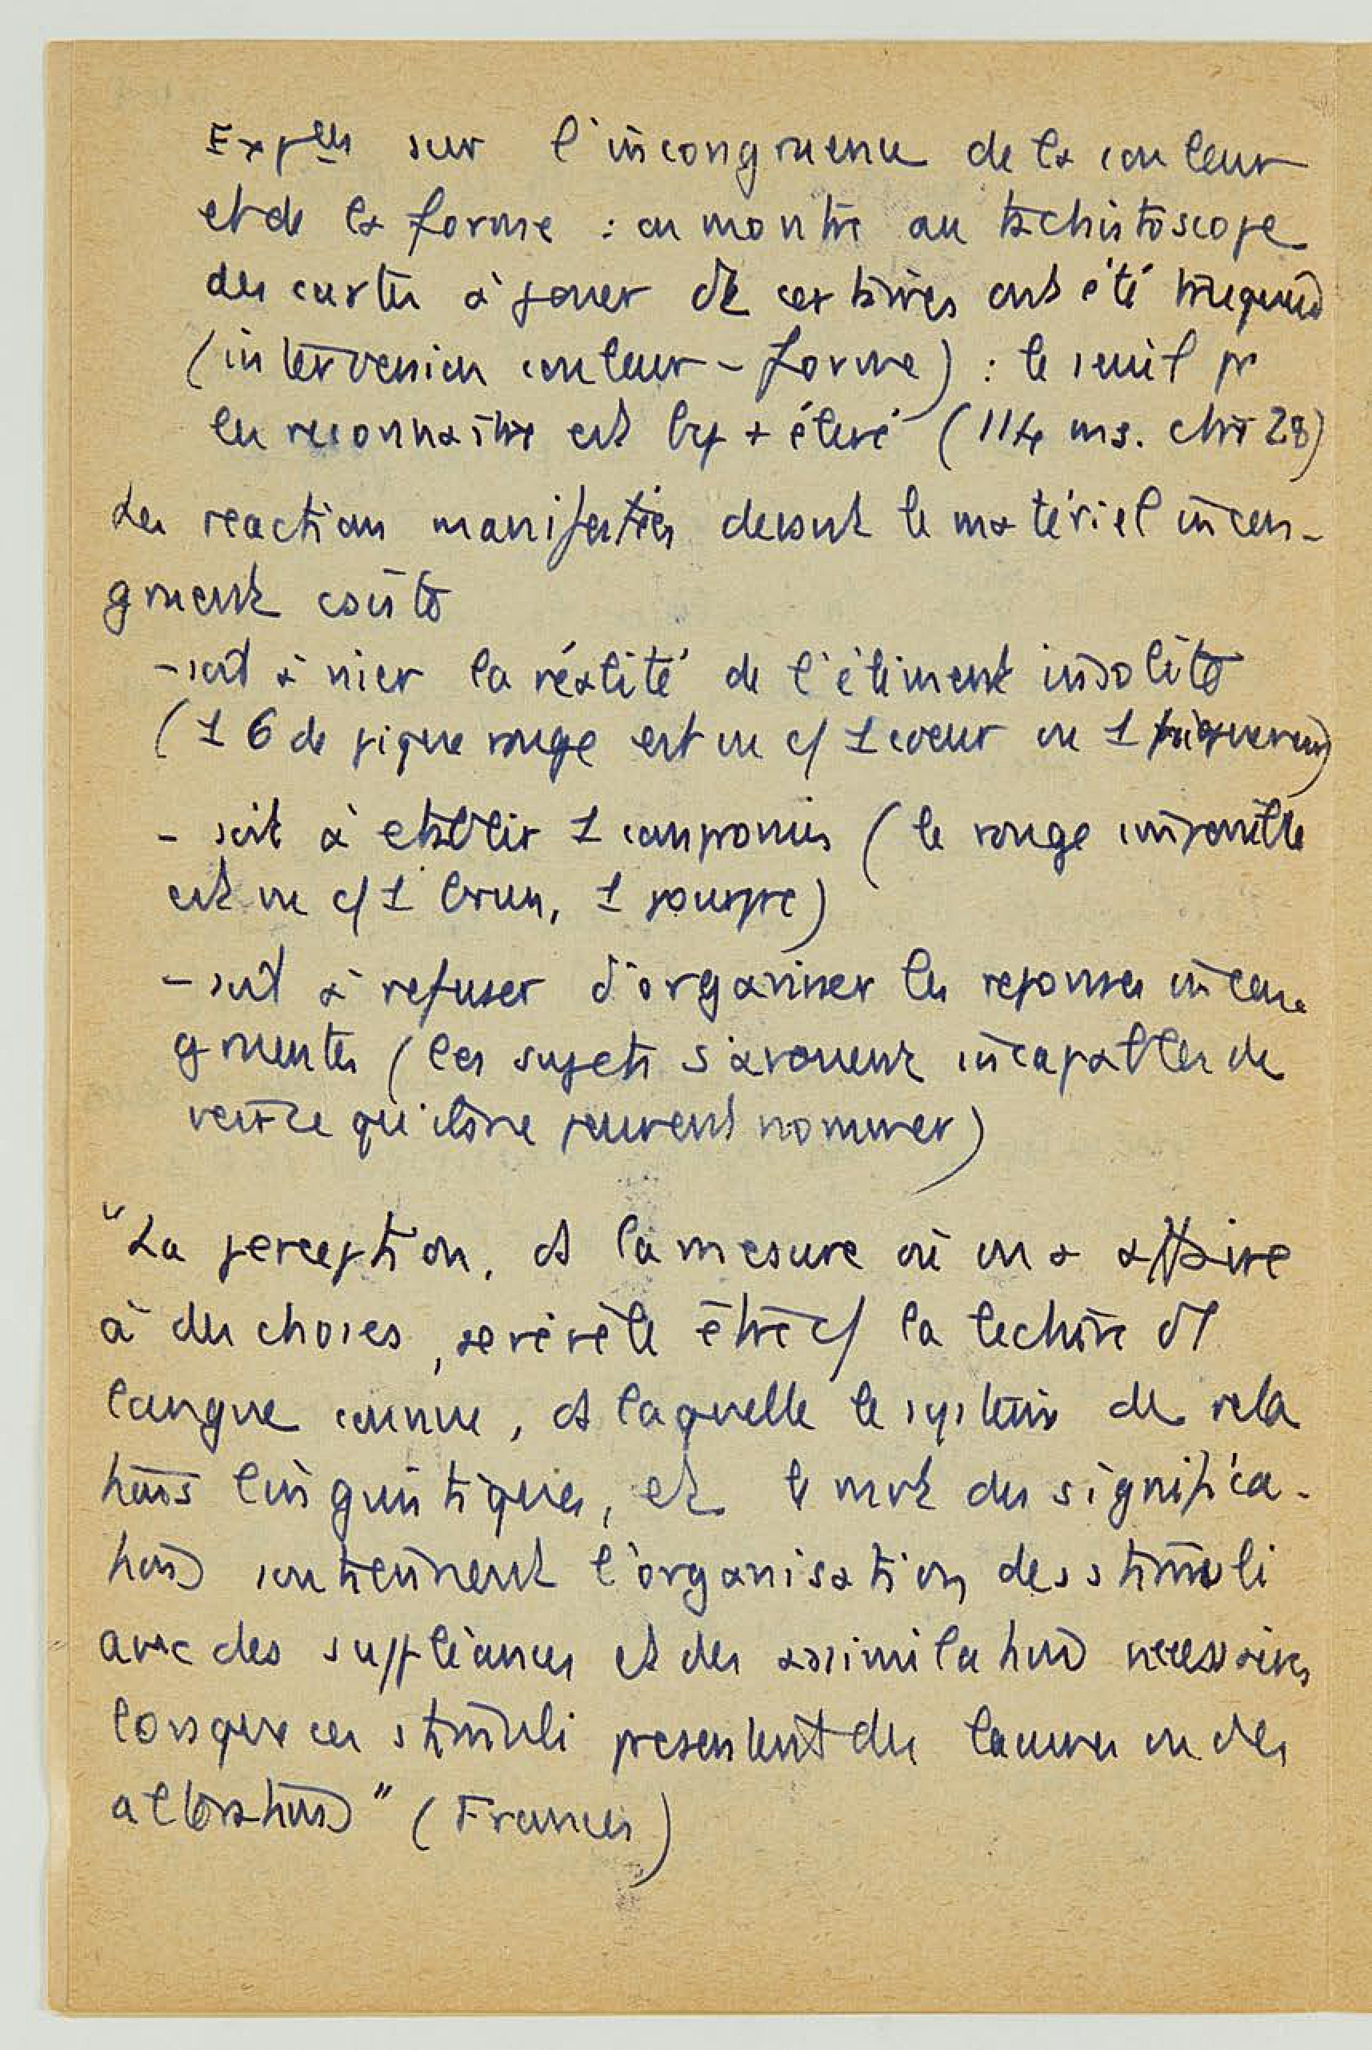 Exp^ces sur l'incongruence de la couleur
et de la forme : on montre au tachistoscope
des cartes à jouer dt certaines ont été truquées
(interversion couleur - forme) : le seuil pr
les reconnaître est bcp + élevé (114 ms. ctre 28)
Les reactions manifestées devant le matériel incon-
gruent consiste
- soit à nier la réalité de l'élément insolite
(1 6 de pique rouge est vu c/ 1 coeur ou 1 pique noir)
- soit à etablir 1 compromis (le rouge impossible
est vu c/ 1 brun, 1 pourpre)
- soit à refuser d'organiser les reponses incon-
gruentes (les sujets s'avouent incapables de
voir ce qu'ils ne peuvent nommer)
"La perception, ds la mesure où on a affaire
à des choses, se révèle être c/ la lecture d'1
langue connue, ds laquelle le système de rela
tions linguistiques, et le mot des significa-
tions soutiennent l'organisation des stimuli
avec des suppléances et des assimilations necessaires
lorsque ces stimuli presentent des lacunes ou des
altérations" (Frances)